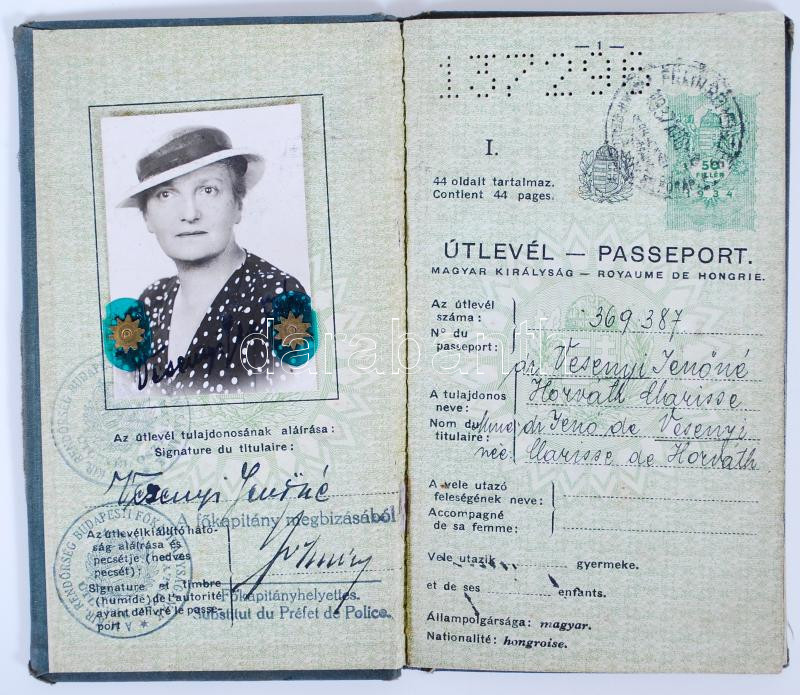 Vesenyi
Az útlevél tulajdonosának aláírása:
Signature du titulaire:
Vesenyi Jenőné
A főkapitány megbízásából
Az útlevélkiállító ható-
ság aláírása és
pecsétje (nedves
pecsét):
Signature et timbre
(humide) de l'autorité
ayant délivré le passe-
port
Főkapitányhelyettes.
Substitut du Préfet de Police.
— 1 —
137296
I.
44 oldalt tartalmaz.
Contient 44 pages.
50
FILLÉR
1934
ÚTLEVÉL — PASSEPORT.
MAGYAR KIRÁLYSÁG — ROYAUME DE HONGRIE.
Az útlevél
száma:
N° du
passeport:
369.387
dr. Vesenyi Jenőné
Horváth Clarisse
A tulajdonos
neve:
Nom du
titulaire:
Mme dr Jenő de Vesenyi
née: Clarisse de Horváth
A vele utazó
feleségének neve:
Accompagné
de sa femme:
Vele utazik gyermeke.
et de ses enfants.
Állampolgársága: magyar.
Nationalité: hongroise.
darabanth